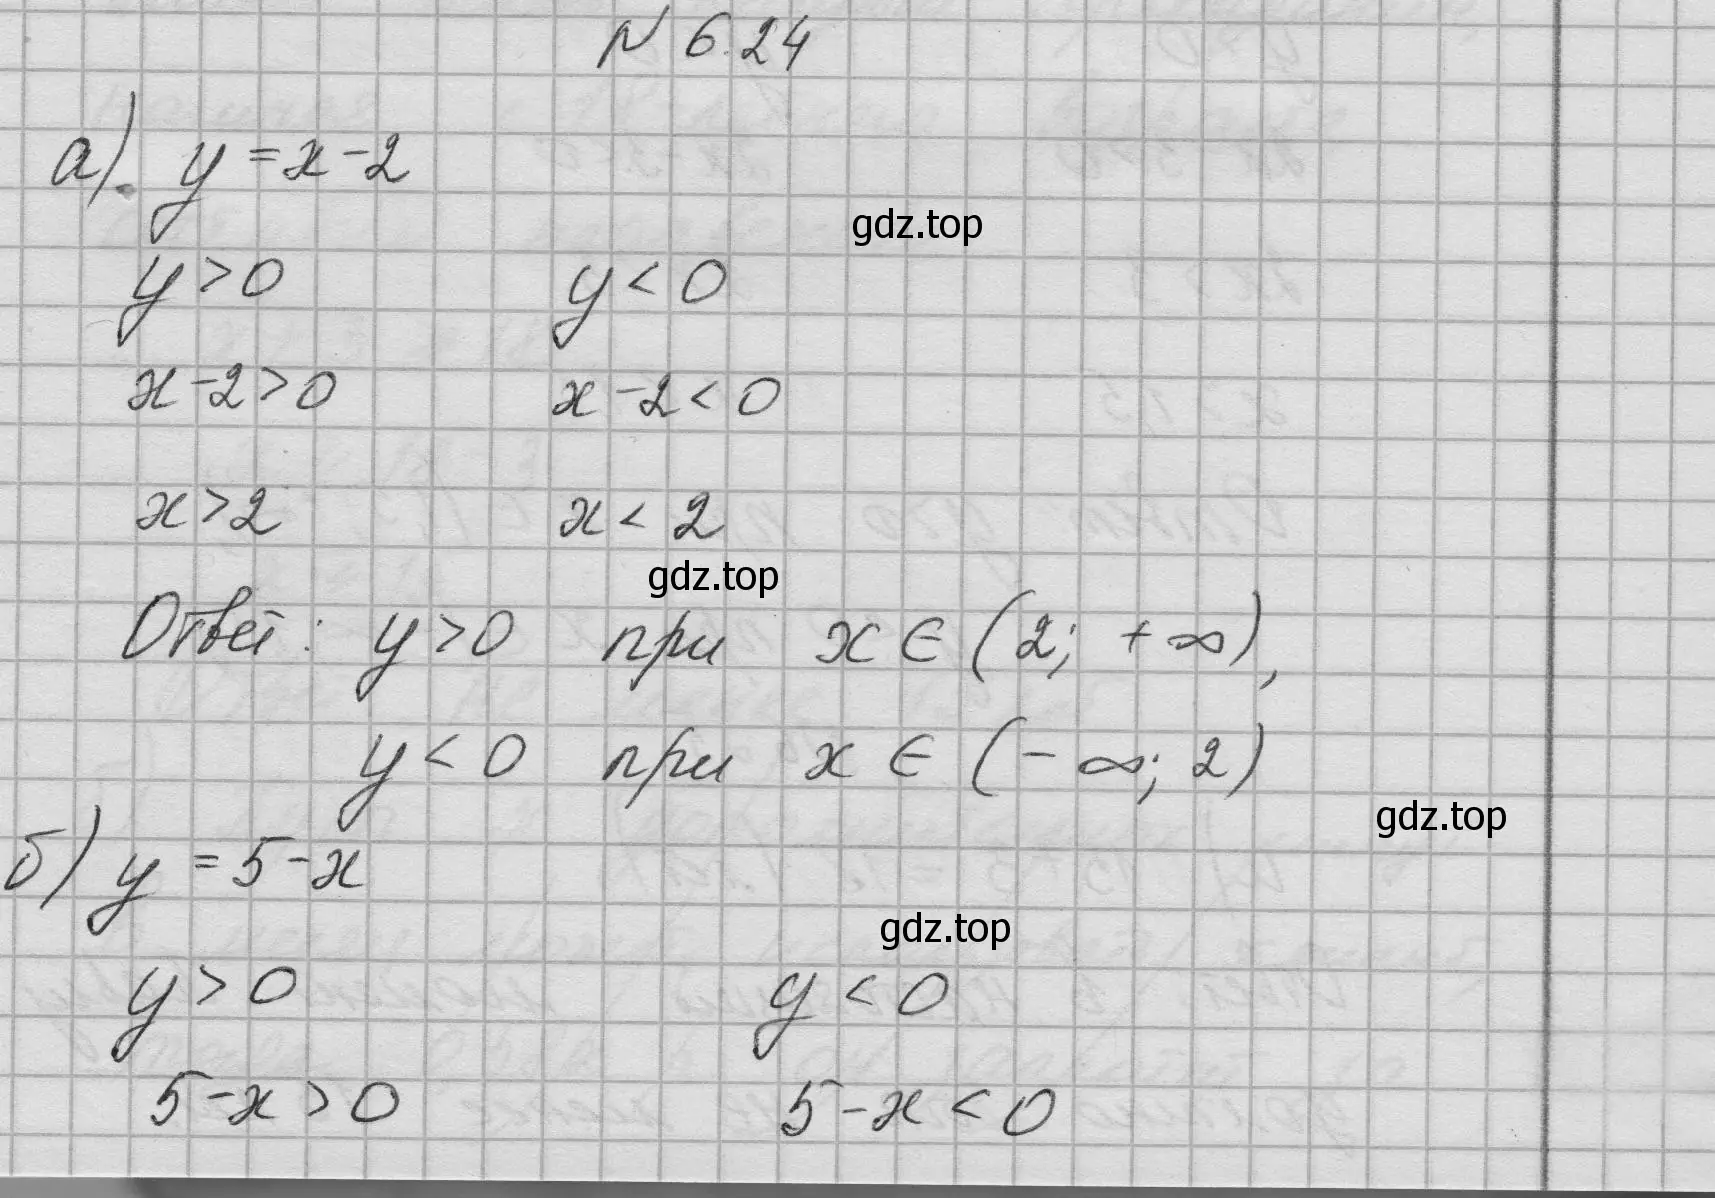 N 6.24
а). y = x - 2
gdz.top
y > 0 y < 0
x - 2 > 0 x - 2 < 0
x > 2 x < 2
gdz.top
Ответ: y > 0 при x ∈ (2; +∞),
y < 0 при x ∈ (-∞; 2)
gdz.top
б) y = 5 - x
gdz.top
y > 0 y < 0
5 - x > 0 5 - x < 0